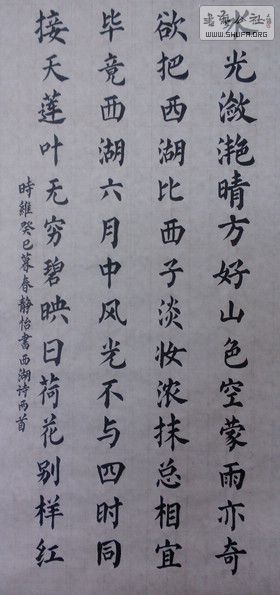 水光潋滟晴方好山色空蒙雨亦奇
欲把西湖比西子淡妆浓抹总相宜
毕竟西湖六月中风光不与四时同
接天莲叶无穷碧映日荷花别样红
時維癸巳暮春静怡書西湖诗两首
WWW.SHUFA.ORG